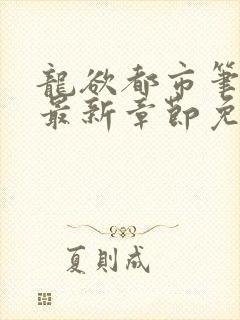 龍欲都市筆
最新章節免
夏則成